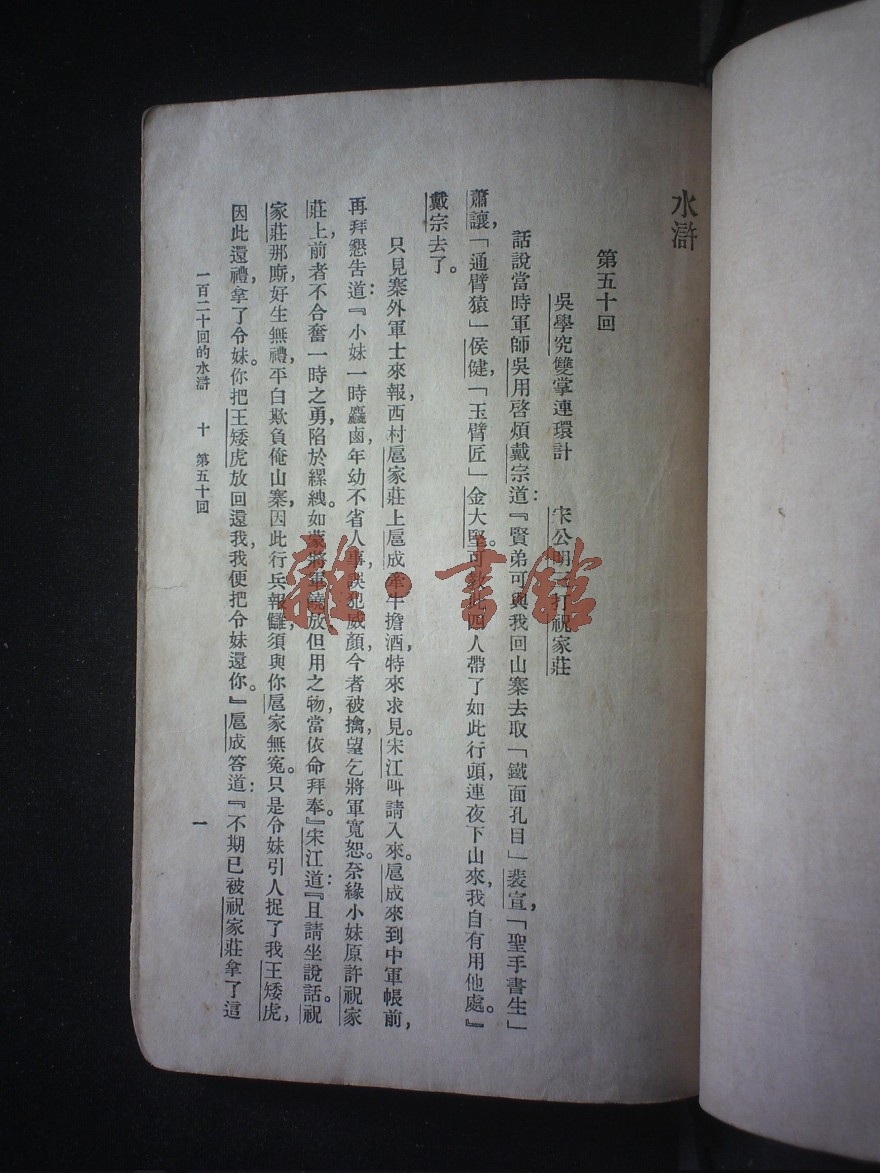 水滸
第五十回
吳學究雙掌連環計　宋公明三打祝家莊
話說當時軍師吳用啓煩戴宗道：『賢弟可與我回山寨去取「鐵面孔目」裴宣，「聖手書生」
蕭讓，「通臂猿」侯健，「玉臂匠」金大堅。可教此四人帶了如此行頭，連夜下山來，我自有用他處。』
戴宗去了。
只見寨外軍士來報，西村扈家莊上扈成牽牛擔酒，特來求見。宋江叫請入來。扈成來到中軍帳前，
再拜懇告道：『小妹一時麤鹵，年幼不省人事，誤犯威顏，今者被擒，望乞將軍寬恕。奈緣小妹原許祝家
莊上，前者不合奮一時之勇，陷於縲絏。如蒙將軍饒放，但用之物，當依命拜奉。』宋江道：『且請坐說話。祝
家莊那廝好生無禮，平白欺負俺山寨，因此行兵報讎，須與你扈家無冤。只是令妹引人捉了我王矮虎，
因此還禮，拿了令妹。你把王矮虎放回還我，我便把令妹還你。』扈成答道：『不期已被祝家莊拿了這
一百二十回的水滸　十　第五十回　一
雜·書館